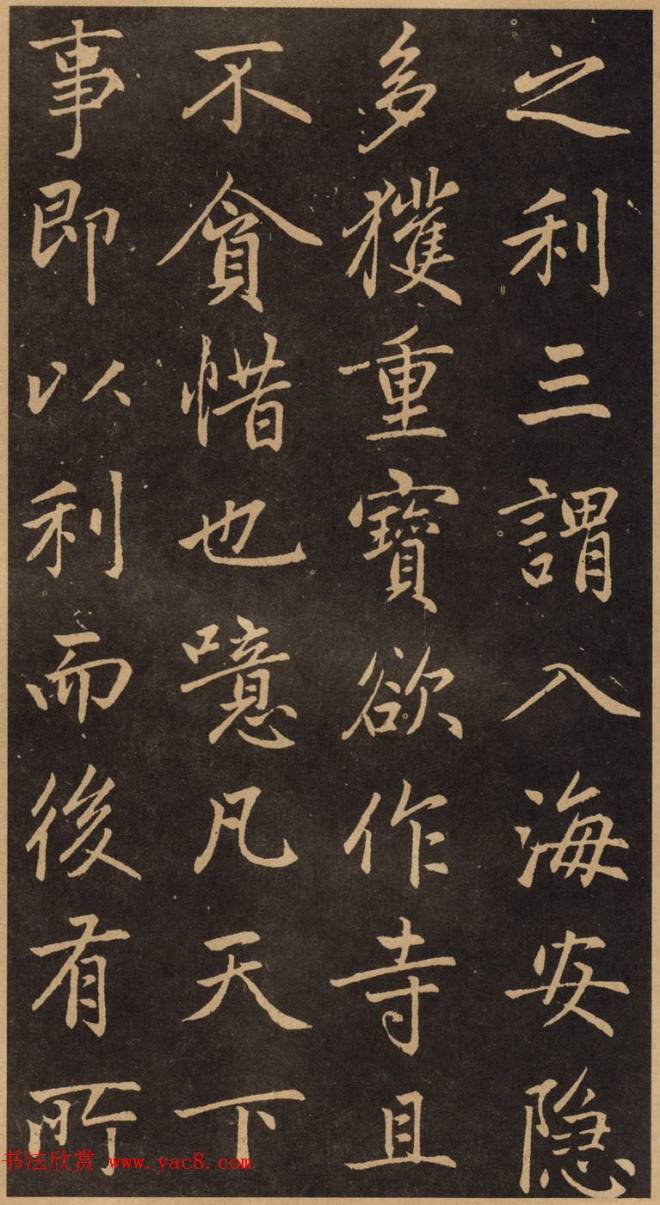 之利三謂入海安隐
多獲重寶欲作寺且
不貪惜也噫凡天下
事即以利而後有所
书法欣赏 www.yac8.com